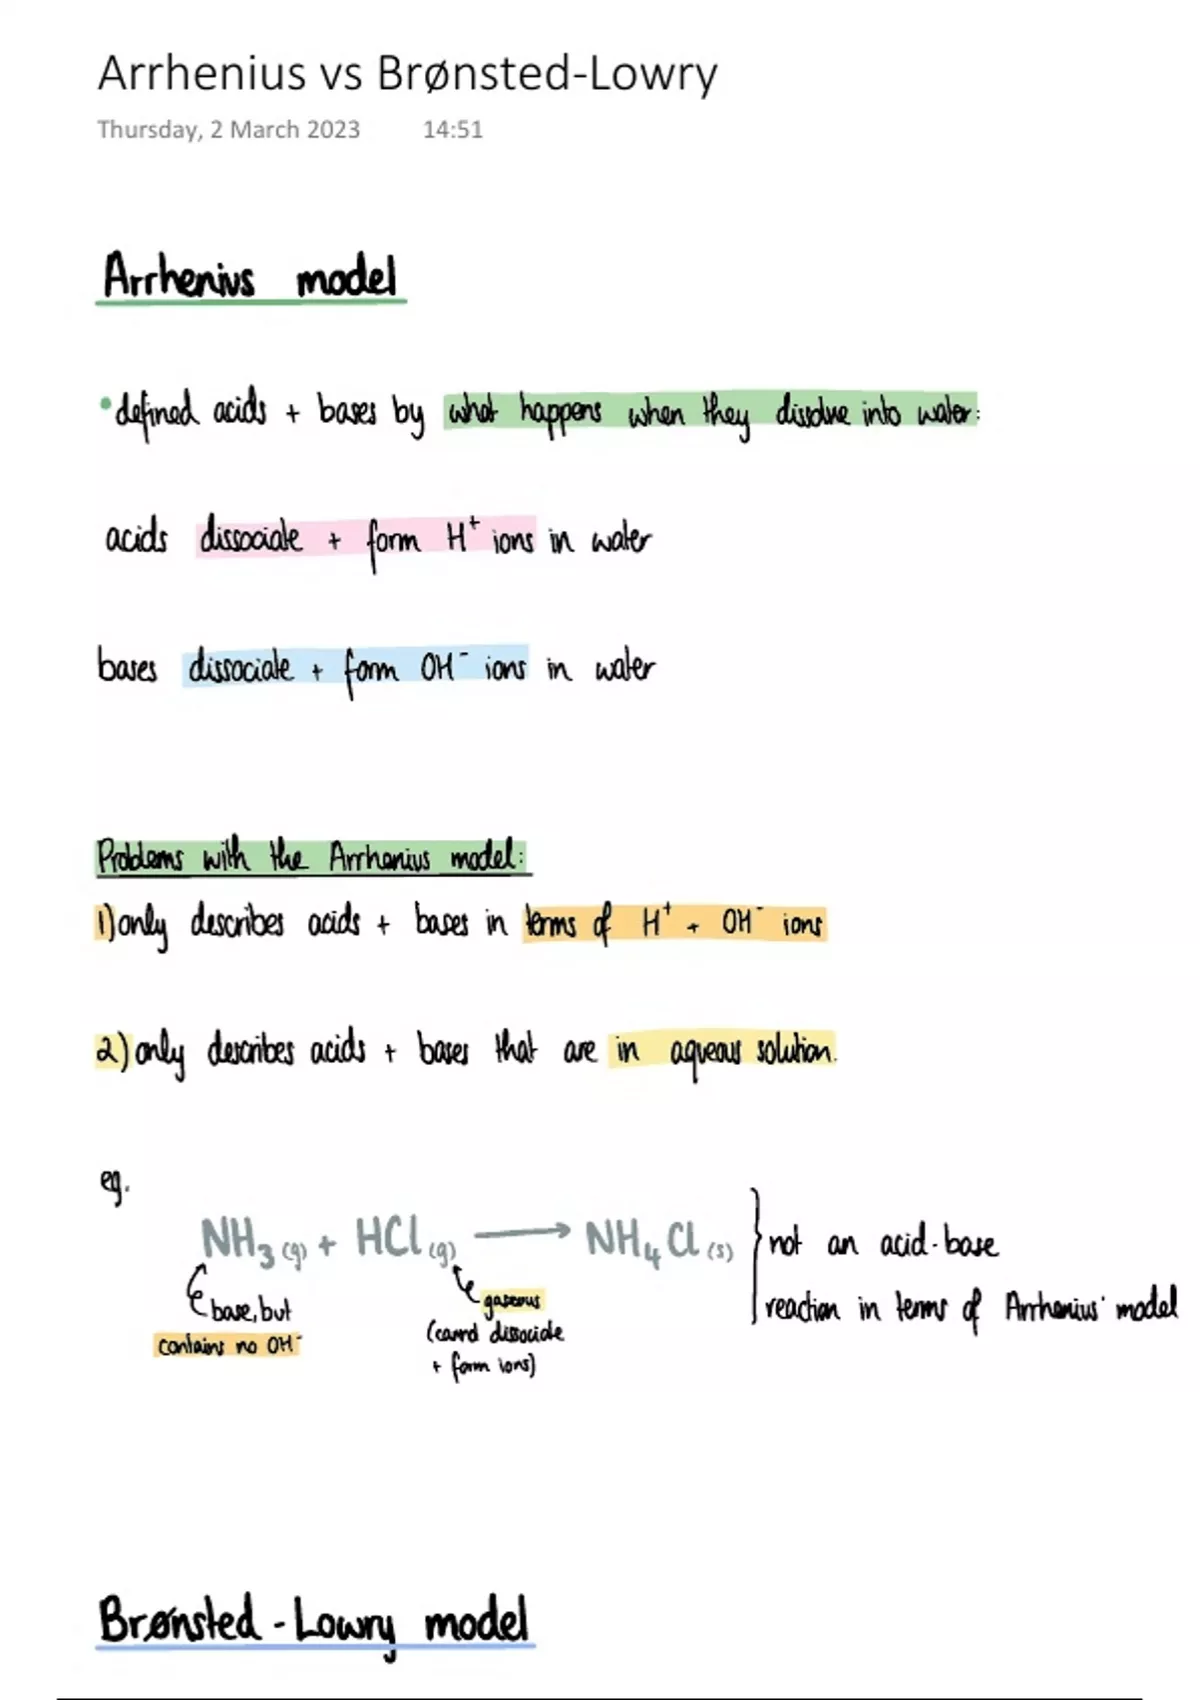 Arrhenius vs Brønsted-Lowry
Thursday, 2 March 2023 14:51
Arrhenius model
•defined acids + bases by what happens when they dissolve into water:
acids dissociate + form H⁺ ions in water
bases dissociate + form OH⁻ ions in water
Problems with the Arrhenius model:
1) only describes acids + bases in terms of H⁺ + OH⁻ ions
2) only describes acids + bases that are in aqueous solution.
eg.
NH₃(g) + HCl(g) → NH₄Cl(s) } not an acid-base
reaction in terms of Arrhenius' model
base, but
contains no OH⁻
gaseous
(cannot dissociate
+ form ions)
Brønsted-Lowry model